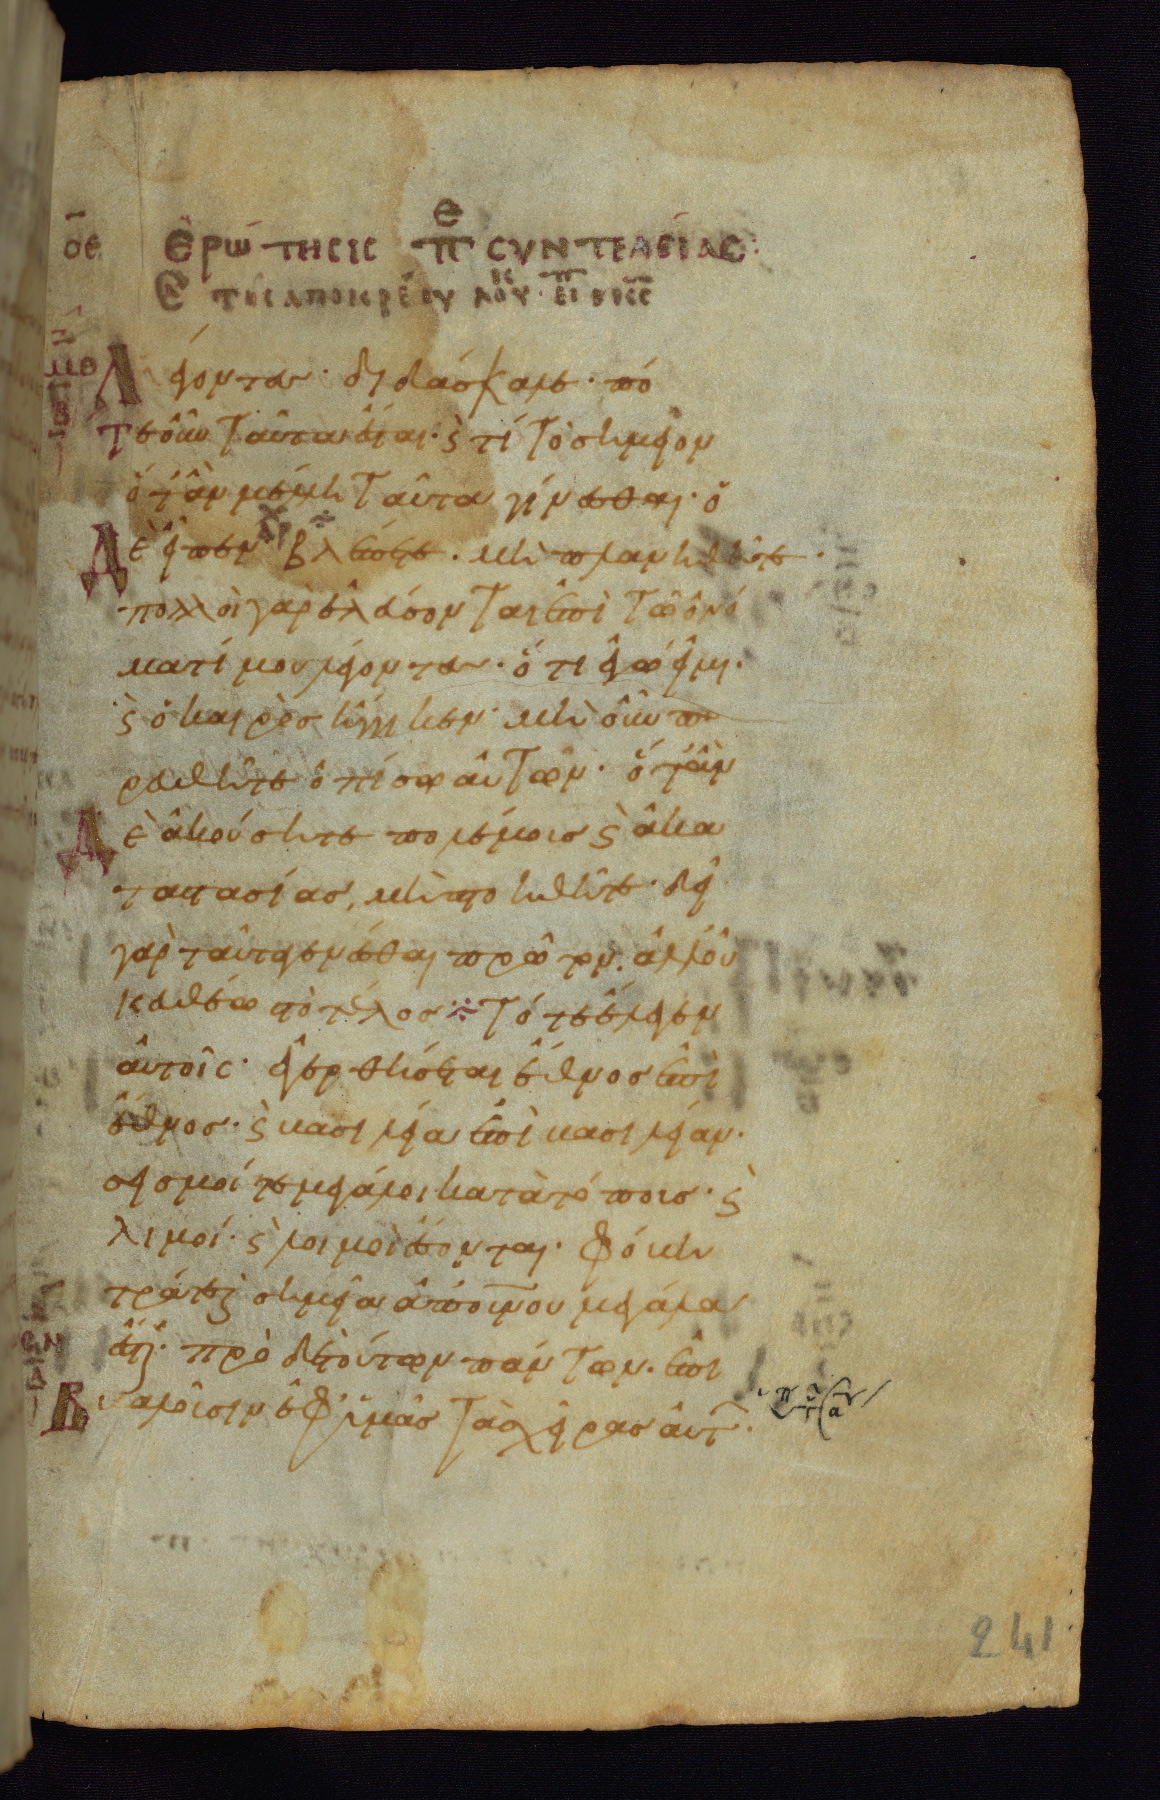 οε Ἐρώτησις πε συντελείας:
Λέγοντες· διδάσκαλε· πό
τε οὖν ταῦτα ἔσται· ϛ τί τὸ σημεῖον
ὅταν μέλλη ταῦτα γίνεσθαι· ὁ
Δὲ εἶπεν βλέπετε· μὴ πλανηθῆτε·
πολλοὶ γὰρ ἐλεύσονται ἐπὶ τῶ ὀνό
ματί μου λέγοντες· ὅτι ἐγώ εἰμι·
ϛ ὁ καιρὸς ἤγγικεν· μὴ οὖν πο
ρευθῆτε ὀπίσω αὐτῶν· ὅταν
Δὲ ἀκούσητε πολέμους ϛ ἀκα
ταστασίας, μὴ πτοηθῆτε· δεῖ
γὰρ ταῦτα γενέσθαι πρῶτον, ἀλλ' οὐ
κ εὐθέως τὸ τέλος ⁘ Τότε ἔλεγεν
αὐτοῖς· ἐγερθήσεται ἔθνος ἐπὶ
ἔθνος· ϛ βασιλεία ἐπὶ βασιλείαν·
σεισμοί τε μεγάλοι κατὰ τόπους· ϛ
λιμοί· ϛ λοιμοὶ ἔσονται· φόβη
τράτε ϛ σημεῖα ἀπ' οὐνου μεγάλα
ἔσται· πρὸ δὲ τούτων πάντων· ἐπι
Βαλοῦσιν ἐφ' ὑμᾶς τὰς χεῖρας αὐτ·
241